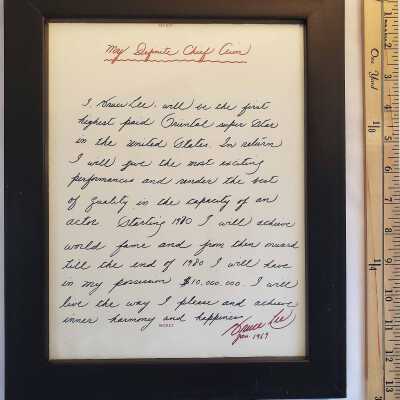 SECRET
My Definite Chief Aim
I, Bruce Lee, will be the first
highest paid Oriental super Star
in the United States. In return
I will give the most exciting
performances and render the best
of quality in the capacity of an
actor. Starting 1970 I will achieve
world fame and from then onward
till the end of 1980 I will have
in my possession $10,000,000. I will
live the way I please and achieve
inner harmony and happiness
Bruce Lee
Jan. 1969
SECRET
One Yard
1/8
1/4
2
3
4
5
6
7
8
9
10
11
12
13